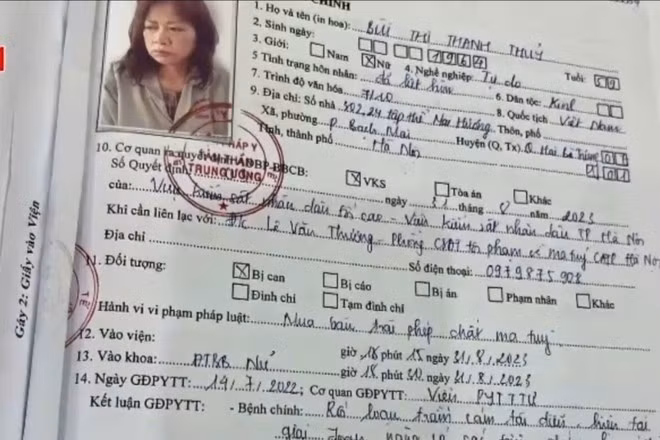 CHÍNH
1. Họ và tên (in hoa): BÙI THỊ THANH THUỶ
2. Sinh ngày: 1964 Tuổi: 59
3. Giới: Nam Nữ 4. Nghề nghiệp: Tự do
5 Tình trạng hôn nhân: đã kết hôn 6. Dân tộc: Kinh
7. Trình độ văn hóa: 7/10 8. Quốc tịch Việt Nam
9. Địa chỉ: Số nhà tập thể Thôn, phố
Xã, phường P. Bạch Mai Huyện (Q, Tx) Q. Hai Bà Trưng
Tỉnh, thành phố Hà Nội
TRUNG ƯƠNG
10. Cơ quan ra quyết định BBCB: VKS Tòa án Khác
Số Quyết định ngày 31 tháng 8 năm 2023
của: Viện kiểm sát nhân dân tối cao - Viện kiểm sát nhân dân TP Hà Nội
Khi cần liên lạc với: Đ/c Lê Văn Thưởng - Phòng CSĐT tội phạm về ma tuý CATP Hà Nội
Địa chỉ Số điện thoại: 0979875908
11. Đối tượng: Bị can Bị cáo Bị án Phạm nhân Khác
Đình chỉ Tạm đình chỉ
Hành vi vi phạm pháp luật: Mua bán trái phép chất ma tuý
12. Vào viện: giờ 16 phút 15 ngày 31.8.2023
13. Vào khoa: ĐTBB Nữ giờ 18 phút 30 ngày 31.8.2023
14. Ngày GĐPYTT: 14.7.2022; Cơ quan GĐPYTT: Viện PYTTTƯ
Kết luận GĐPYTT: - Bệnh chính: Rối loạn trầm cảm tái diễn, hiện tại
giai
Gáy 2: Giấy vào Viện